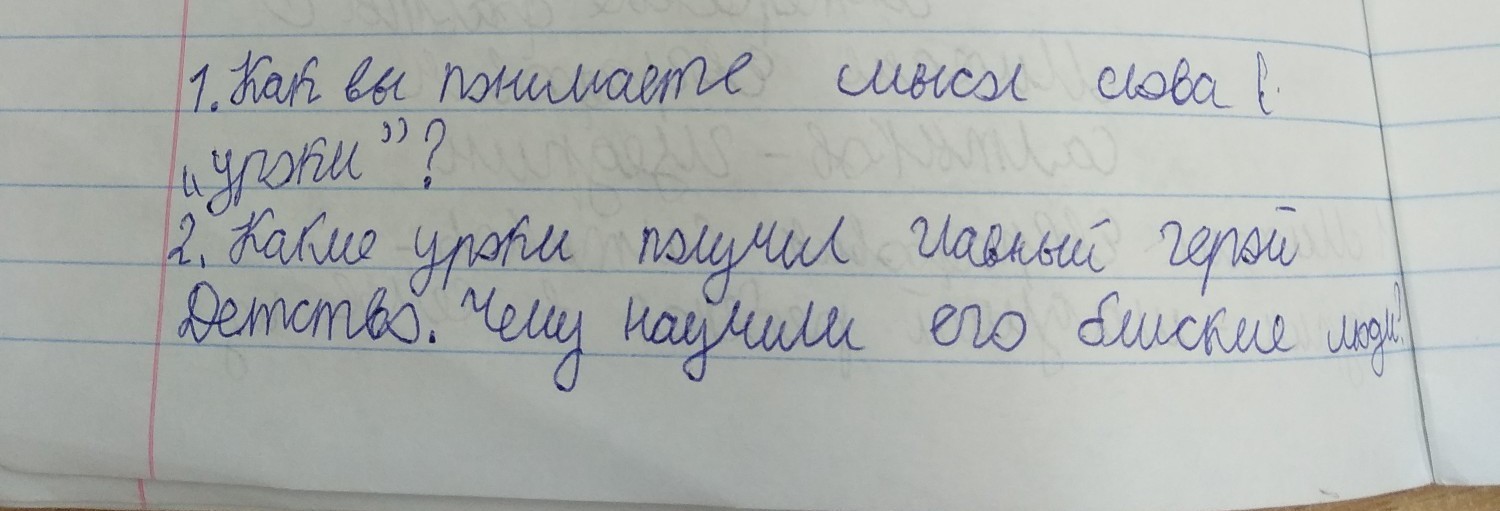 1. Как вы понимаете смысл слова
„уроки”?
2. Какие уроки получил главный герой
Детство. Чему научили его блиские люди?